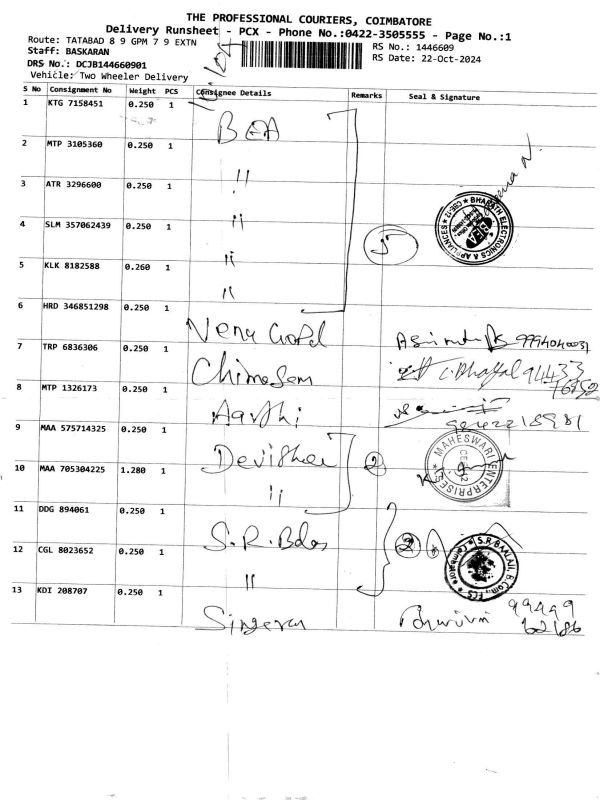 THE PROFESSIONAL COURIERS, COIMBATORE
Delivery Runsheet - PCX - Phone No.:0422-3505555 - Page No.:1
Route: TATABAD 8 9 GPM 7 9 EXTN
RS No.: 1446609
Staff: BASKARAN
RS Date: 22-Oct-2024
DRS No.: DCJB144660901
Vehicle: Two Wheeler Delivery
S No Consignment No Weight PCS Consignee Details Remarks Seal & Signature
1 KTG 7158451 0.250 1
2 MTP 3105360 0.250 1 "
3 ATR 3296600 0.250 1 "
4 SLM 357062439 0.250 1 "
BHARATH ELECTRONICS & APPLIANCES ★ CBE-12 ★
5 KLK 8182588 0.260 1 "
6 HRD 346851298 0.250 1 Venugopal 9994040031
7 TRP 6836306 0.250 1 94433
8 MTP 1326173 0.250 1 Aarthi
9 MAA 575714325 0.250 1
MAHESWARI ENTERPRISES
10 MAA 705304225 1.280 1 " 2
11 DDG 894061 0.250 1 2
S.R. BAALAJI, B.Com., FCS ★ Coimbatore ★
12 CGL 8023652 0.250 1 "
13 KDI 208707 0.250 1 99499
62186